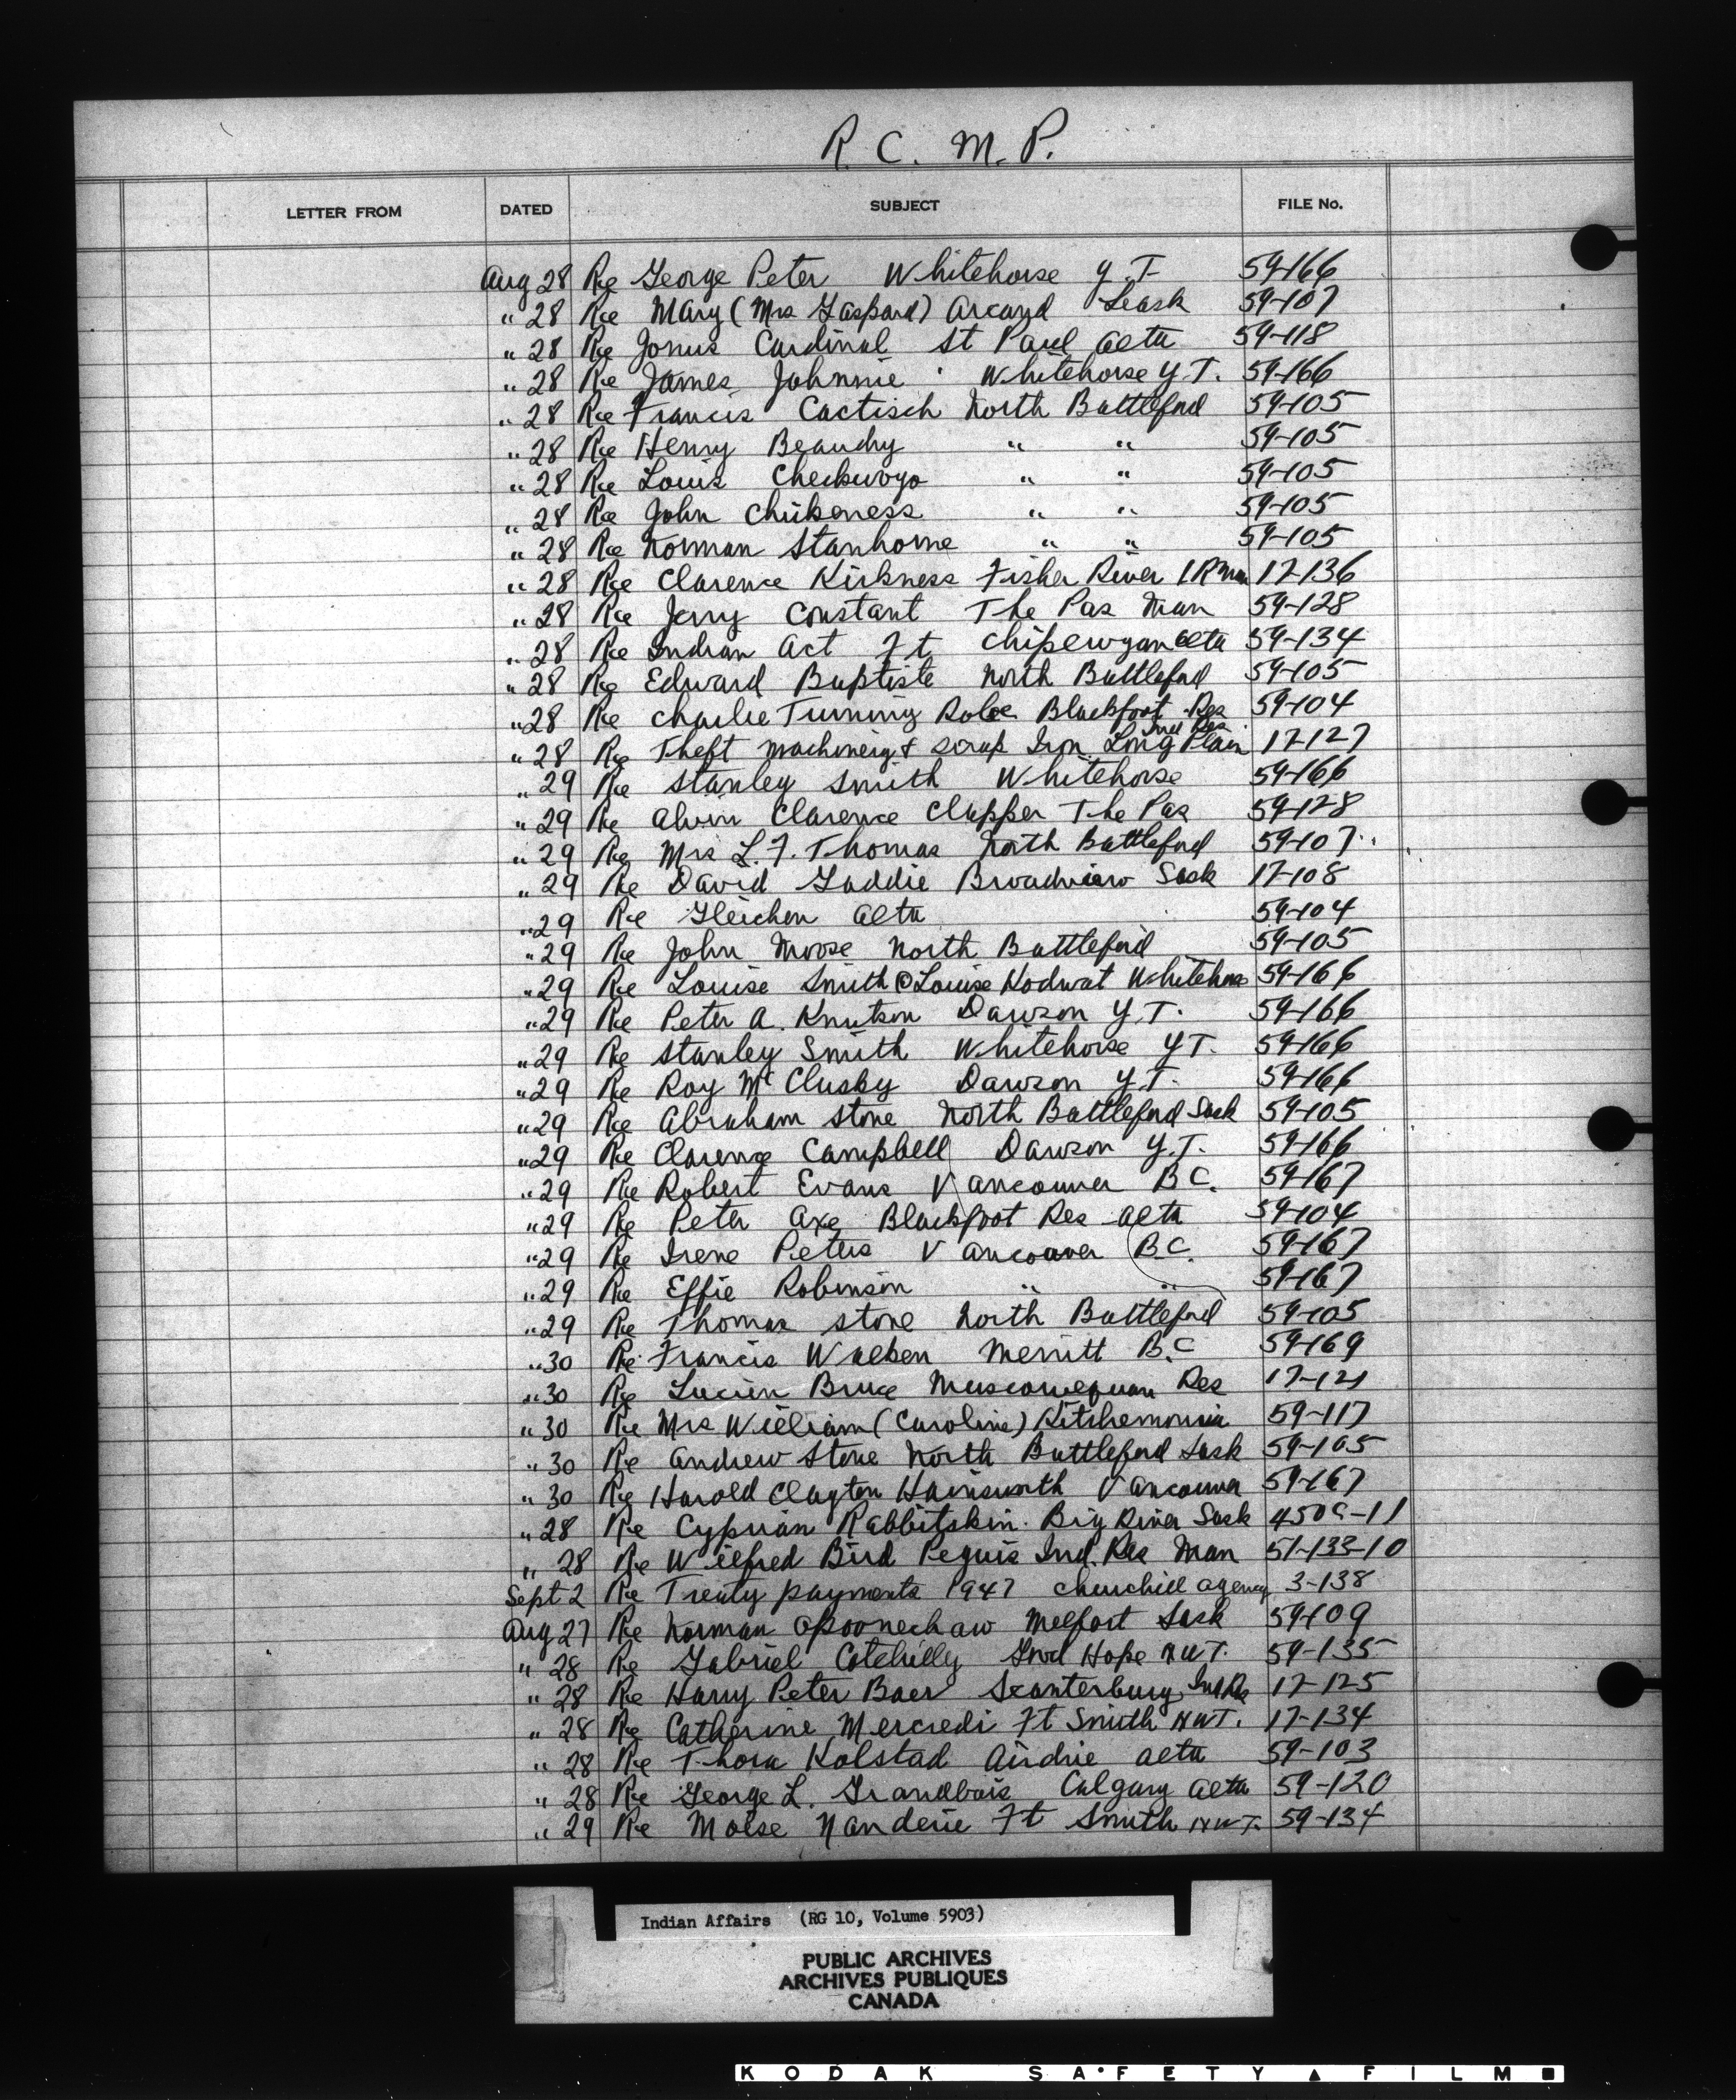 R. C. M. P.
LETTER FROM DATED SUBJECT FILE No.
Aug 28 Re George Peter Whitehorse Y.T. 59-166
" 28 Re Mary (Mrs Gaspard) Arcand Leask 59-107
" 28 Re Jonus Cardinal St Paul Alta 59-118
" 28 Re James Johnnie Whitehorse Y.T. 59-166
" 28 Re Francis Cactisch North Battleford 59-105
" 28 Re Henry Beaudry " " 59-105
" 28 Re Louis Checkwogo " " 59-105
" 28 Re John Chickeness " " 59-105
" 28 Re Norman Stanhorne " " 59-105
" 28 Re Clarence Kirkness Fisher River I.R Man 17-136
" 28 Re Jerry Constant The Pas Man 59-128
" 28 Re Indian Act Ft Chipewyan Alta 59-134
" 28 Re Edward Baptiste North Battleford 59-105
" 28 Re Charlie Turning Robe Blackfoot Res 59-104
" 28 Re Theft machinery & scrap Iron Long Plain Ind Res 17-127
" 29 Re Stanley Smith Whitehorse 59-166
" 29 Re Alvin Clarence Clapper The Pas 59-128
" 29 Re Mrs L. F. Thomas North Battleford 59-107
" 29 Re David Gaddie Broadview Sask 17-108
" 29 Re Gleichen Alta 59-104
" 29 Re John Moose North Battleford 59-105
" 29 Re Louise Smith @ Louise Hodwat Whitehorse 59-166
" 29 Re Peter A. Knutson Dawson Y.T. 59-166
" 29 Re Stanley Smith Whitehorse Y.T. 59-166
" 29 Re Roy McClusky Dawson Y.T. 59-166
" 29 Re Abraham Stone North Battleford Sask 59-105
" 29 Re Clarence Campbell Dawson Y.T. 59-166
" 29 Re Robert Evans Vancouver B.C. 59-167
" 29 Re Peter Axe Blackfoot Res Alta 59-104
" 29 Re Irene Peters Vancouver B.C. 59-167
" 29 Re Effie Robinson " " 59-167
" 29 Re Thomas Stone North Battleford 59-105
" 30 Re Francis Walken Merritt B.C 59-169
" 30 Re Lucien Bruce Muscowequan Res 17-121
" 30 Re Mrs William (Caroline) Kitchemonia 59-117
" 30 Re Andrew Stone North Battleford Sask 59-105
" 30 Re Harold Clayton Hainsworth Vancouver 59-167
" 28 Re Cyprian Rabbitskin Big River Sask
" 28 Re Wilfred Bird Peguis Ind. Res Man 51-133-10
Sept 2 Re Treaty payments 1947 Churchill agency 3-138
Aug 27 Re Norman Opoonechaw Melfort Sask 59-109
" 28 Re Gabriel Cotchilly Good Hope N.W.T. 59-135
" 28 Re Harry Peter Baer Scanterbury Ind Re 17-125
" 28 Re Catherine Mercredi Ft Smith N.W.T. 17-134
" 28 Re Thora Kolstad Airdrie Alta 59-103
" 28 Re George L. Grandbois Calgary Alta 59-120
" 29 Re Moise Nanderie Ft Smith N.W.T. 59-134
Indian Affairs (RG 10, Volume 5903)
PUBLIC ARCHIVES
ARCHIVES PUBLIQUES
CANADA
KODAK SAFETY FILM